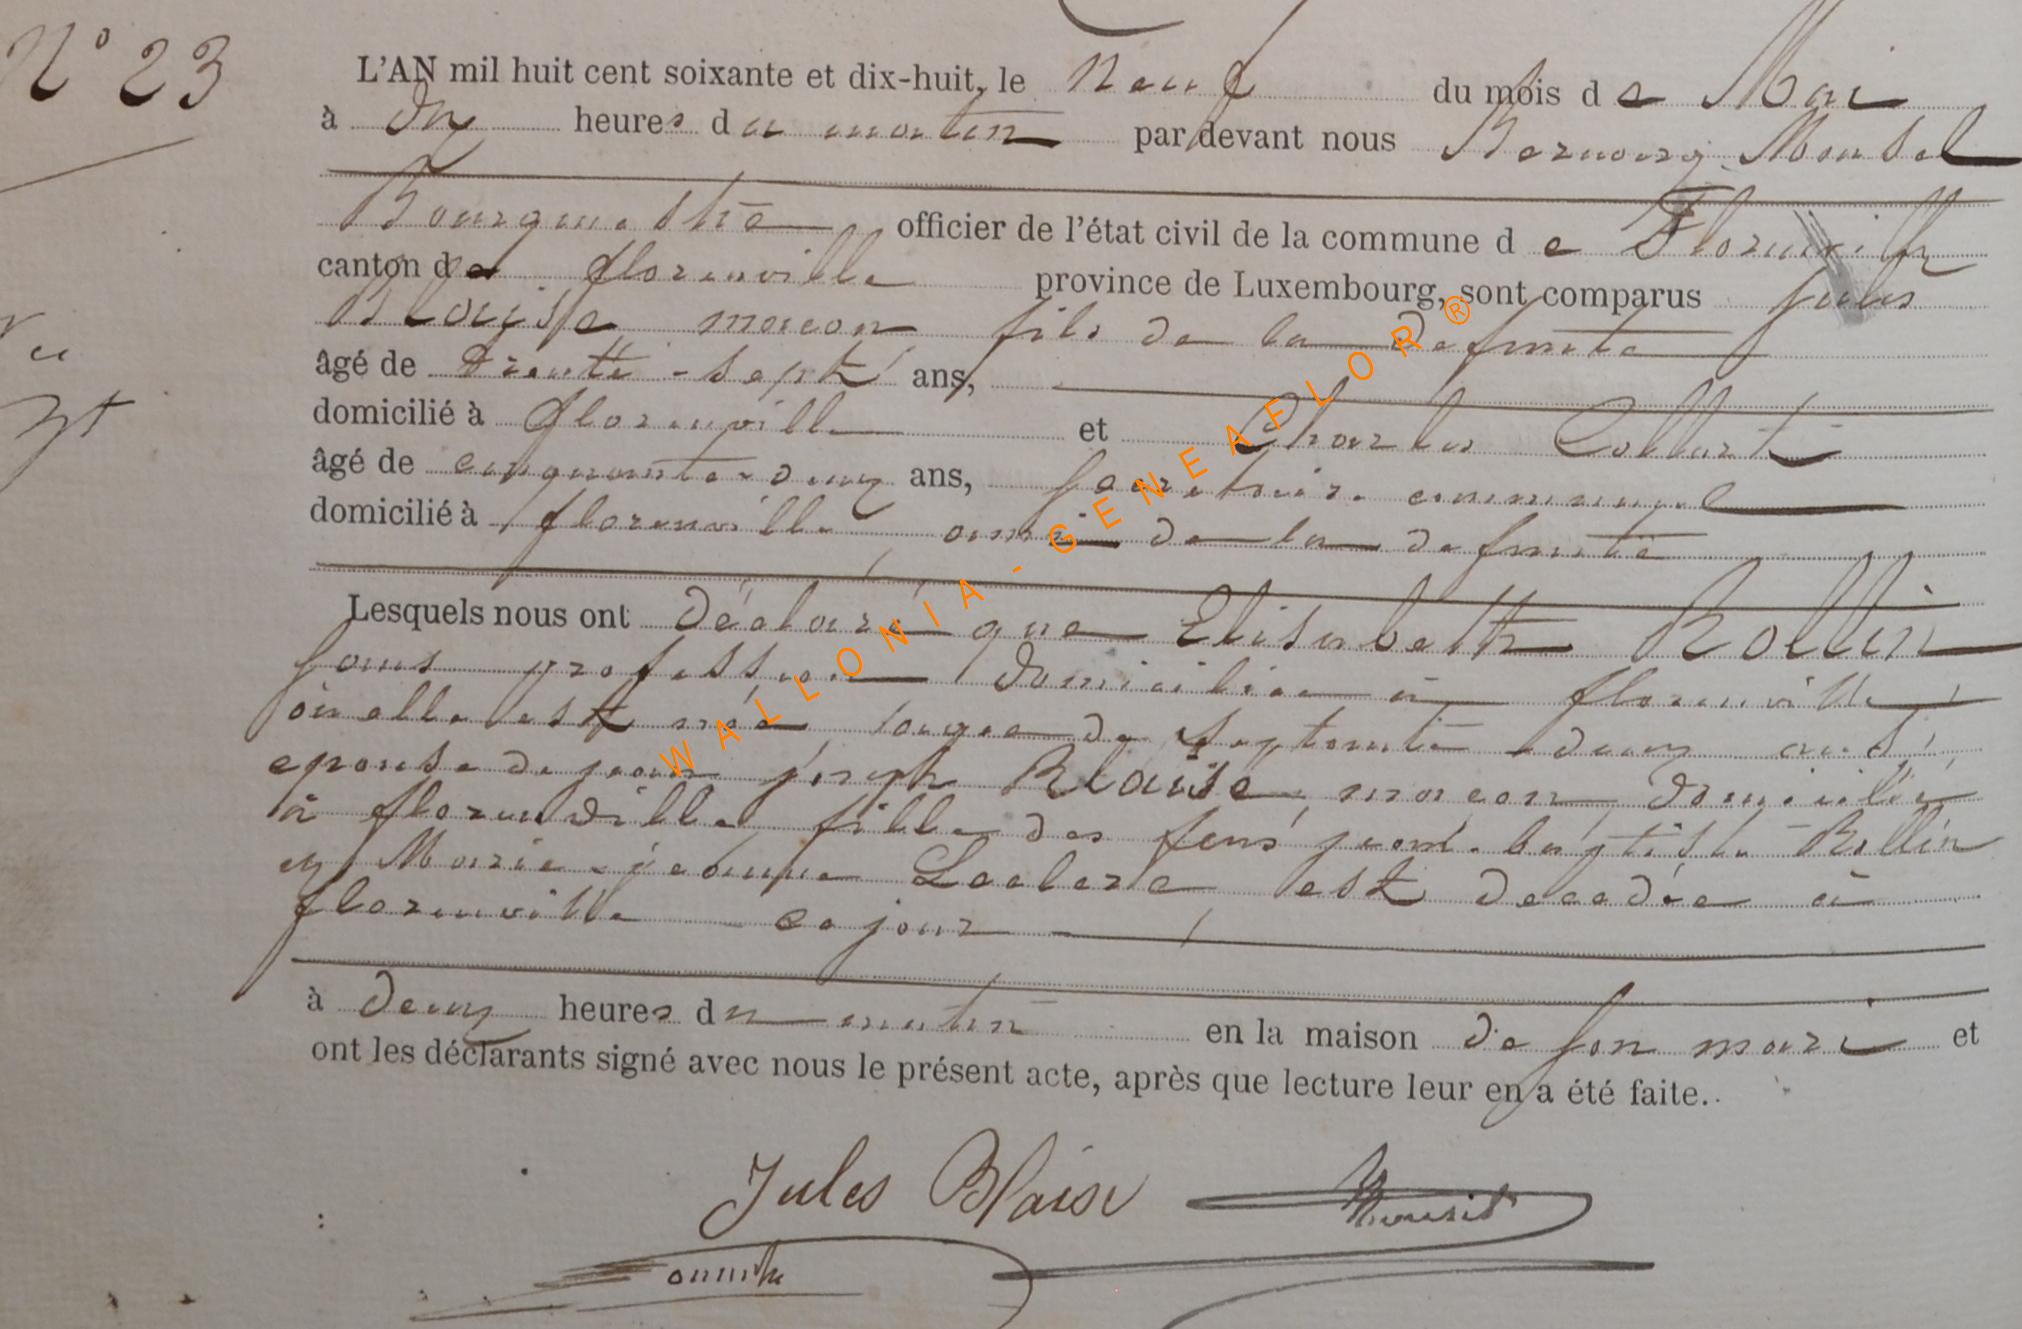 N° 23
L'AN mil huit cent soixante et dix-huit, le neuf du mois de Mai
à dix heures du matin par devant nous
Bourgmestre officier de l'état civil de la commune de Florenville
canton de florenville province de Luxembourg, sont comparus Jules
Blaise maçon fils de la defunte
âgé de trente-sept ans,
domicilié à florenville et Charles Collart
âgé de cinquante-deux ans, secretaire communal
domicilié à florenville, ami de la defunte
Lesquels nous ont déclaré que Elisabeth Rollin
sans profession domiciliée à florenville,
où elle est née, agée de septante-deux ans,
epouse de jean joseph Blaise, maçon, domicilié
à florenville fille des feus jean-baptiste Rollin
et Marie-jeanne Leclere est decedée à
florenville ce jour
à deux heures du matin en la maison de son mari et
ont les déclarants signé avec nous le présent acte, après que lecture leur en a été faite.
Jules Blaise
WALLONIA-GENEAFLOR®